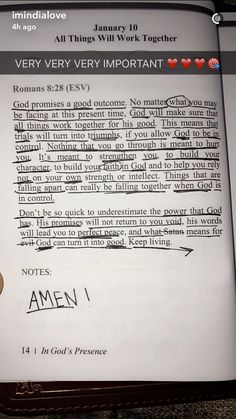 imindialove
4h ago
January 10
All Things Will Work Together
VERY VERY VERY IMPORTANT ❤️❤️❤️🎯
Romans 8:28 (ESV)
God promises a good outcome. No matter what you may
be facing at this present time, God will make sure that
all things work together for his good. This means that
trials will turn into triumphs, if you allow God to be in
control. Nothing that you go through is meant to hurt
you. It's meant to strengthen you, to build your
character, to build your faith in God and to help you rely
not on your own strength or intellect. Things that are
falling apart can really be falling together when God is
in control.
Don't be so quick to underestimate the power that God
has. His promises will not return to you void, his words
will lead you to perfect peace, and what Satan means for
evil God can turn it into good. Keep living.
NOTES:
AMEN!
14 | In God's Presence